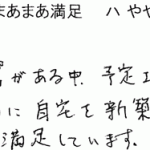 まあまあ満足 ハ やや
がある中、予定エ
に 自宅を新築
満足しています.